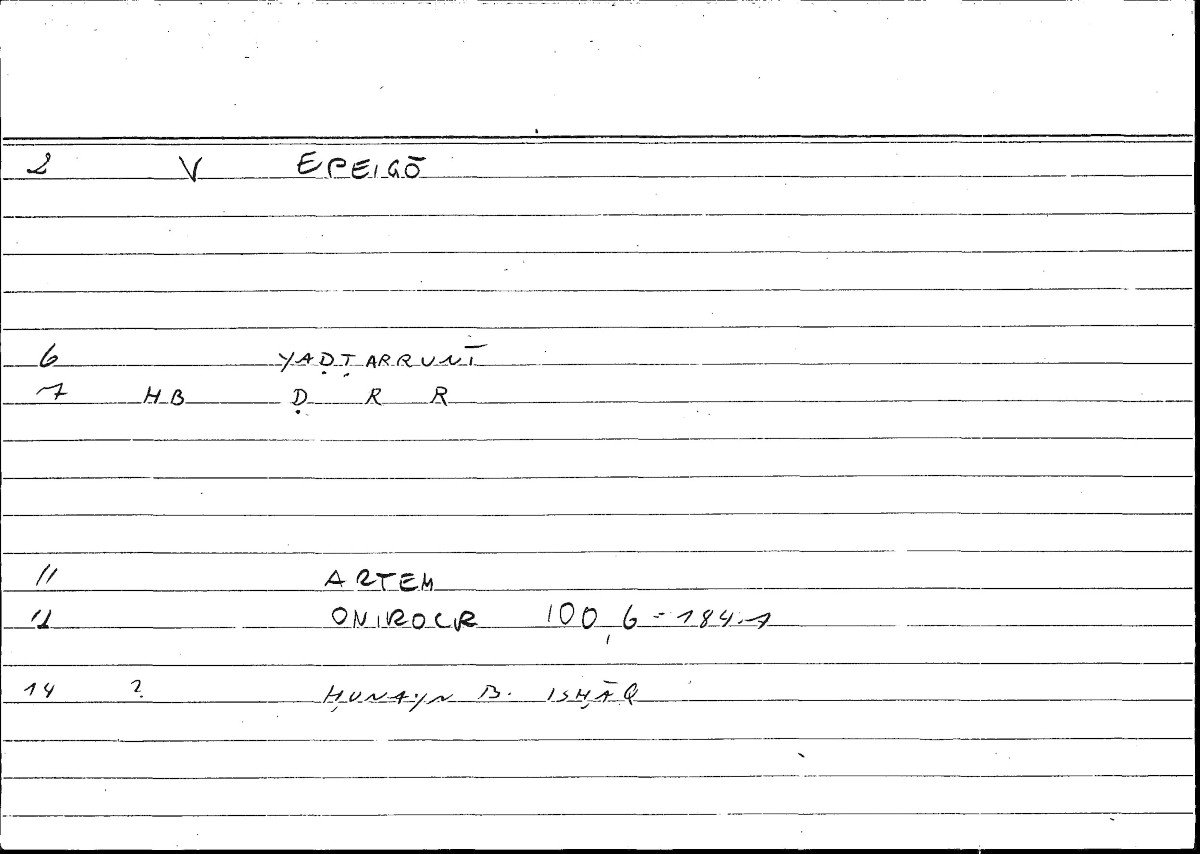 2 V EPEIGŌ
6 YAḌṬARRUNĪ
7 HB Ḍ R R
11 ARTEM
12 ONIROCR 100,6 = 184.1
14 ? ḤUNAYN B. ISḤĀQ